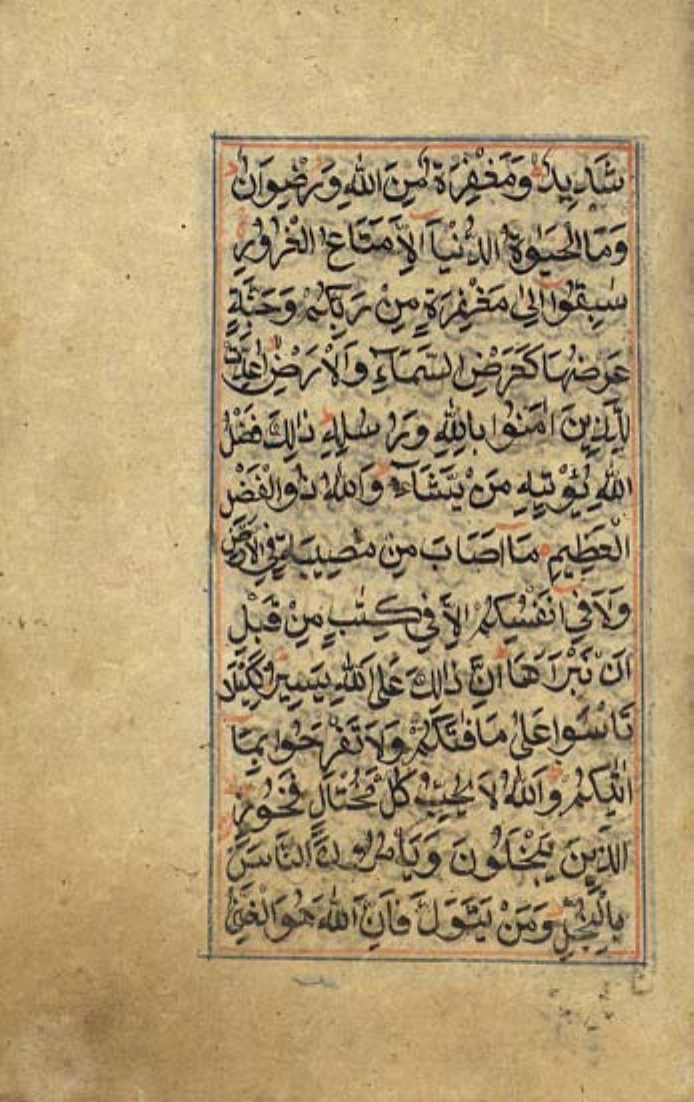 شَدِيدٌ وَمَغْفِرَةٌ مِنَ اللهِ وَرِضْوَانٌ
وَمَا الْحَيٰوةُ الدُّنْيَا اِلَّا مَتَاعُ الْغُرُورِ
سَبِقُوا اِلٰى مَغْفِرَةٍ مِنْ رَبِّكُمْ وَجَنَّةٍ
عَرْضُهَا كَعَرْضِ السَّمَاءِ وَالْاَرْضِ اُعِدَّتْ
لِلَّذِينَ اٰمَنُوا بِاللهِ وَرُسُلِهٖ ذٰلِكَ فَضْلُ
اللهِ يُؤْتِيهِ مَنْ يَشَاءُ وَاللهُ ذُوالْفَضْلِ
الْعَظِيمِ مَا اَصَابَ مِنْ مُصِيبَةٍ فِي الْاَرْضِ
وَلَا فِي اَنْفُسِكُمْ اِلَّا فِي كِتٰبٍ مِنْ قَبْلِ
اَنْ نَبْرَاَهَا اِنَّ ذٰلِكَ عَلَى اللهِ يَسِيرٌ لِكَيْلَا
تَاْسَوْا عَلٰى مَا فَاتَكُمْ وَلَا تَفْرَحُوا بِمَا
اٰتٰيكُمْ وَاللهُ لَا يُحِبُّ كُلَّ مُخْتَالٍ فَخُورٍ
الَّذِينَ يَبْخَلُونَ وَيَاْمُرُونَ النَّاسَ
بِالْبُخْلِ وَمَنْ يَتَوَلَّ فَاِنَّ اللهَ هُوَ الْغَنِيُّ